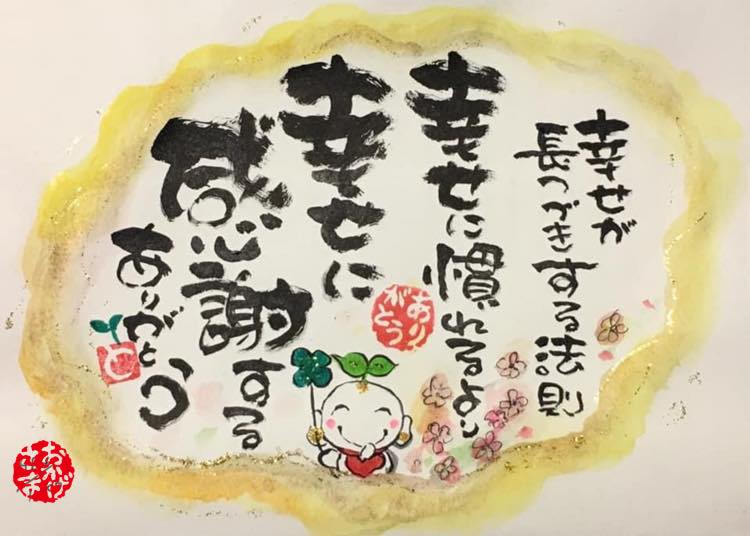 幸せが
長つづきする法則
幸せに慣れるより
幸せに
感謝する
ありがとう
ありがとう
おかげさま